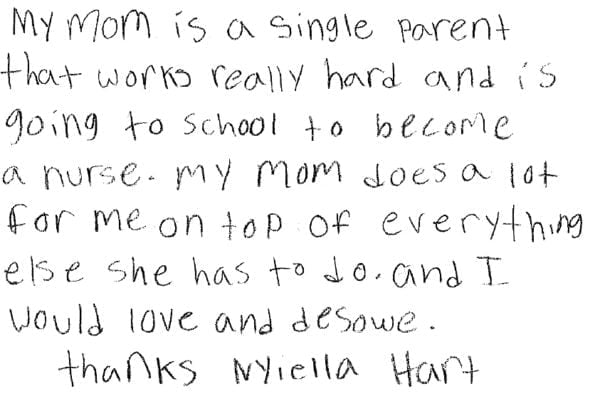 My Mom is a single parent
that works really hard and is
going to school to become
a nurse. my mom does a lot
for me on top of everything
else she has to do. and I
would love and desowe.
thanks Nyiella Hart